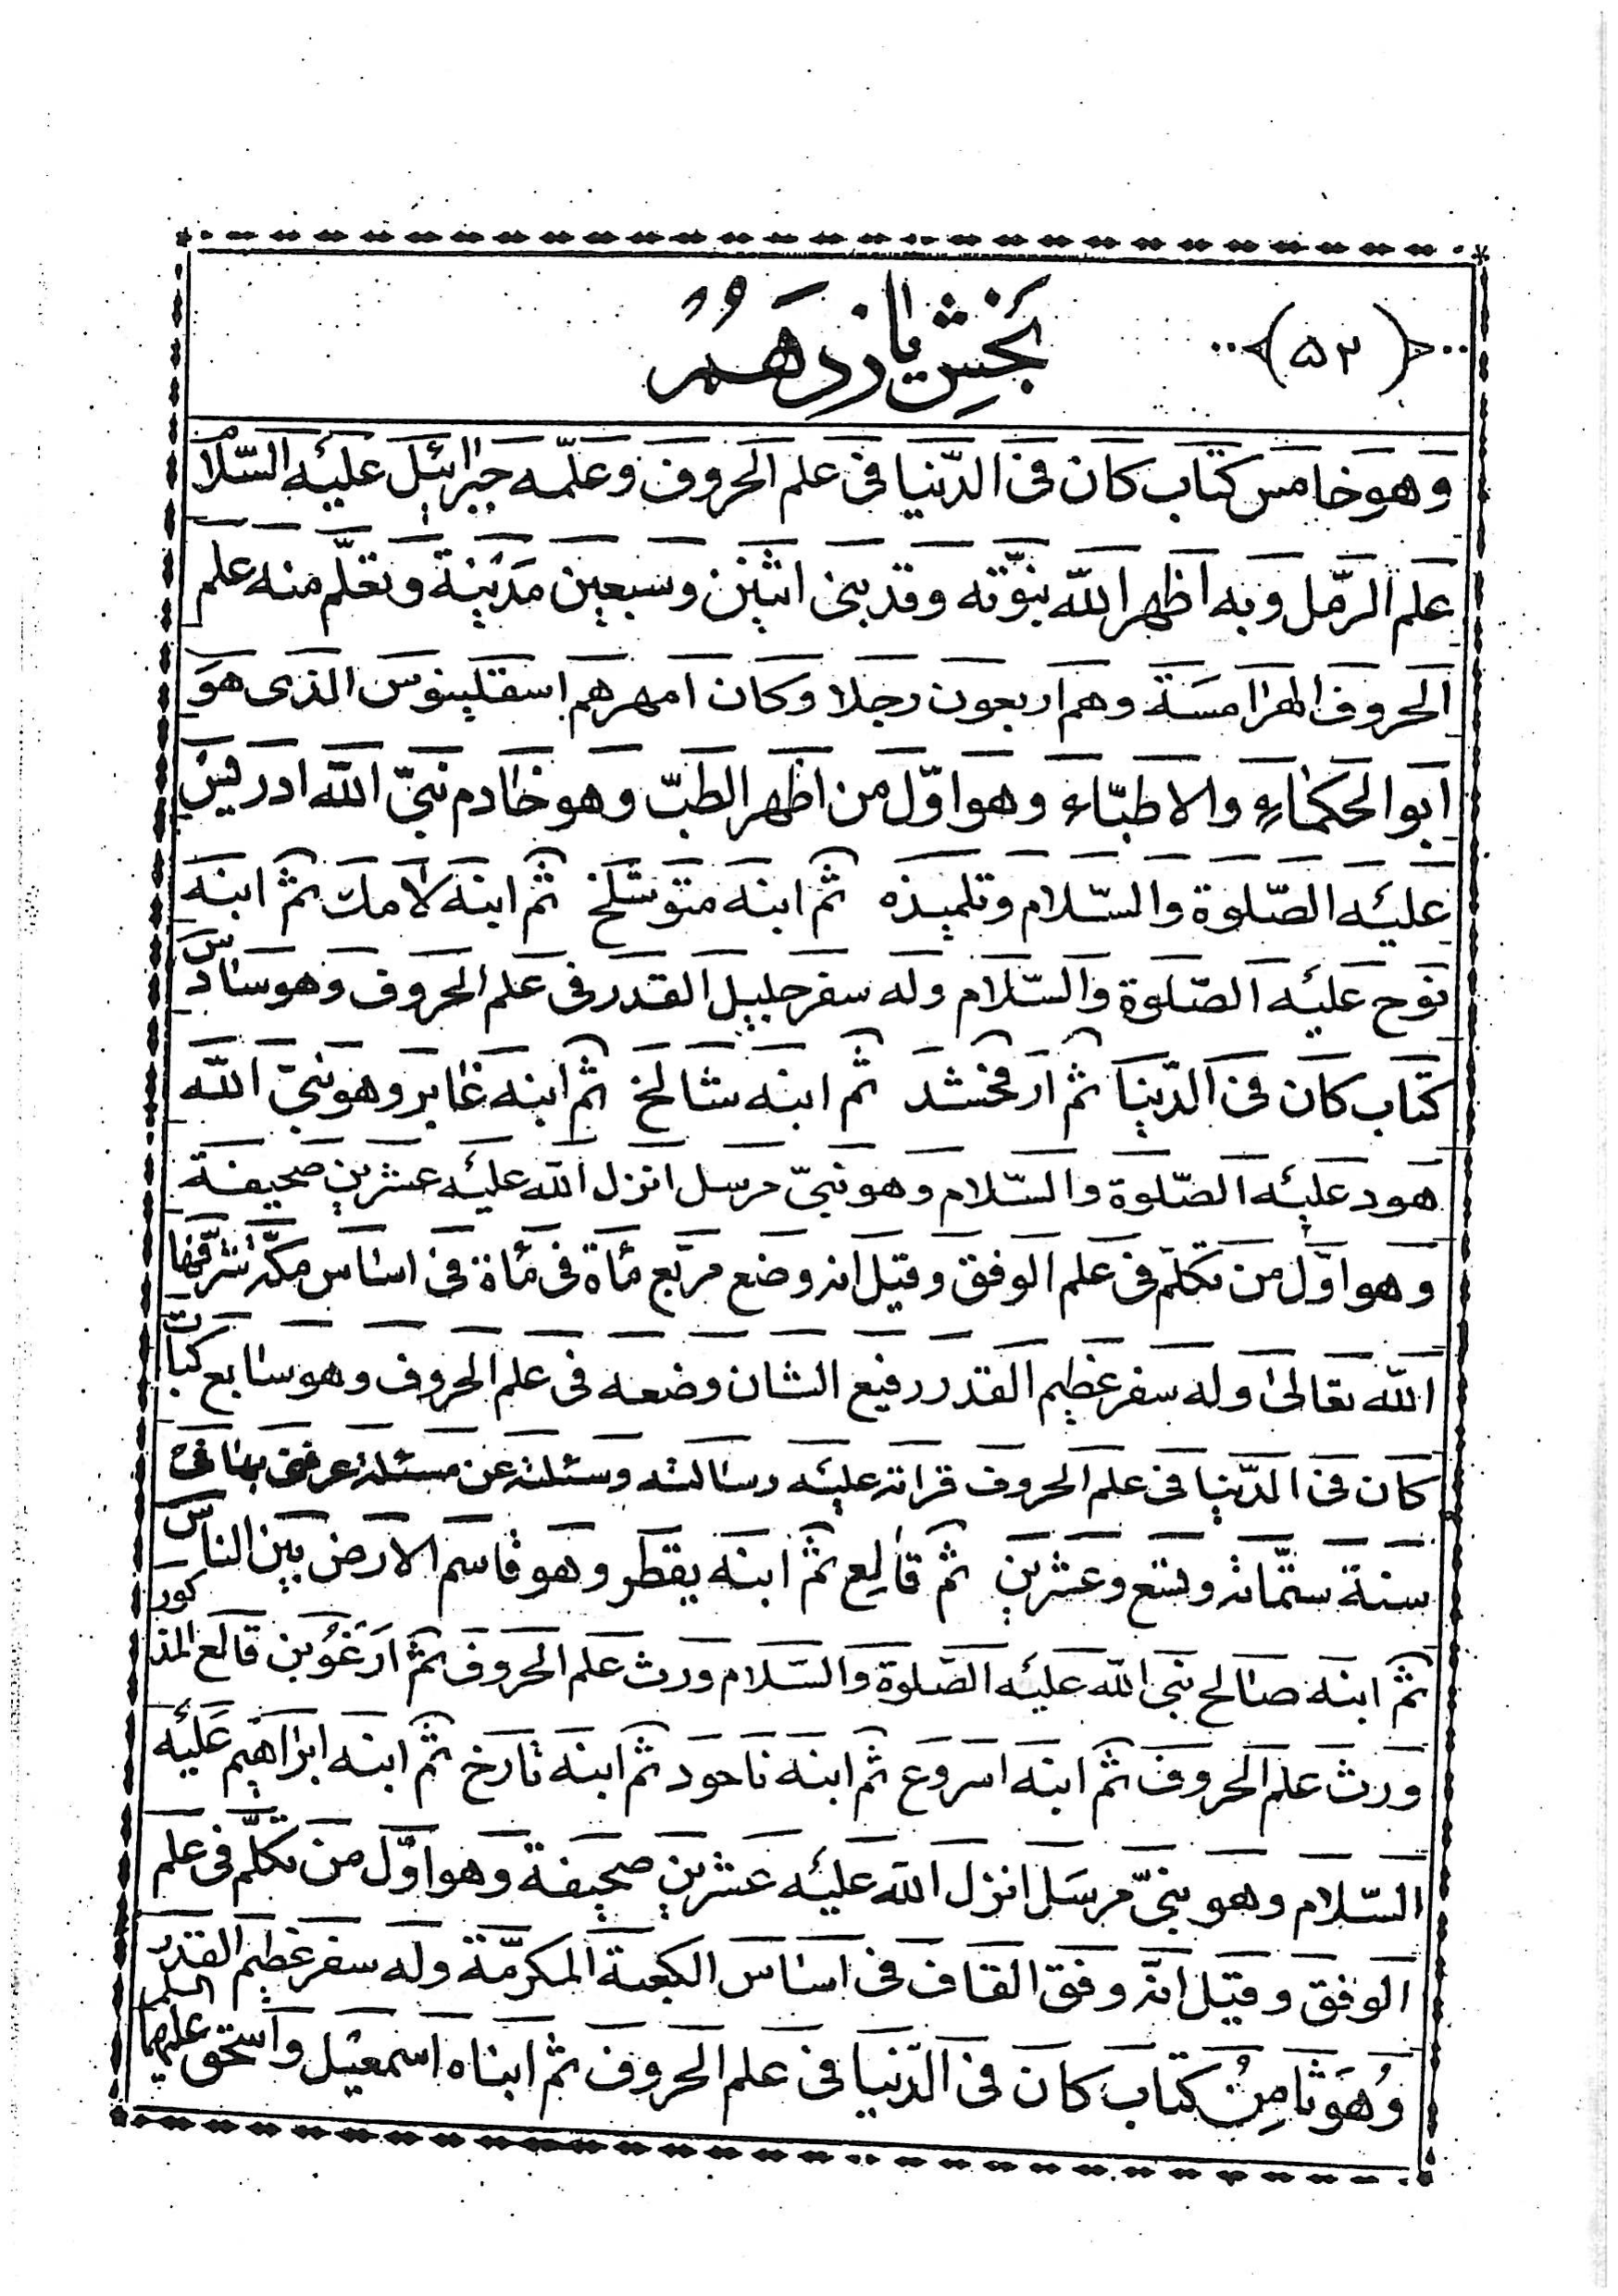 ﴿٥٣﴾
بخش یازدهم
وهو خامس كتاب كان فى الدّنيا فى علم الحروف وعلّمه جبرائيل عليه السّلام
علم الرّمل وبه اظهر الله نبوّته وقد بنى اثنين وسبعين مدينة وتعلّم منه علم
الحروف الهرامسة وهم اربعون رجلا وكان امهرهم اسقلينوس الذى هو
ابو الحكماء والاطبّاء وهو اوّل من اظهر الطبّ وهو خادم نبىّ الله ادريس
عليه الصّلوة والسّلام وتلميذه ثم ابنه متوشلخ ثم ابنه لامك ثم ابنه
نوح عليه الصّلوة والسّلام وله سفر جليل القدر فى علم الحروف وهو سادس
كتاب كان فى الدّنيا ثم ارفخشد ثم ابنه شالخ ثم ابنه عابر وهو نبىّ الله
هود عليه الصّلوة والسّلام وهو نبىّ مرسل انزل الله عليه عشرين صحيفة
وهو اوّل من تكلّم فى علم الوفق وقيل انه وضع مربّع مأة فى مأة فى اساس مكّة شرّفها
الله تعالى وله سفر عظيم القدر رفيع الشان وضعه فى علم الحروف وهو سابع كتاب
كان فى الدّنيا فى علم الحروف قراته عليه رسالته وسئلته عن مسئلة عرفنى بها فى
سنة ستّمائة وتسع وعشرين ثم قالع ثم ابنه يقطر وهو قاسم الارض بين الناس
ثم ابنه صالح نبى الله عليه الصّلوة والسّلام ورث علم الحروف ثم ارغو بن قالع المذكور
ورث علم الحروف ثم ابنه اسروع ثم ابنه ناحود ثم ابنه تارخ ثم ابنه ابراهيم عليه
السّلام وهو نبىّ مرسل انزل الله عليه عشرين صحيفة وهو اوّل من تكلّم فى علم
الوفق وقيل انّه وفق القاف فى اساس الكعبة المكرّمة وله سفر عظيم القدر
وهو ثامن كتاب كان فى الدّنيا فى علم الحروف ثم ابناه اسمعيل واسحق عليهما السلم